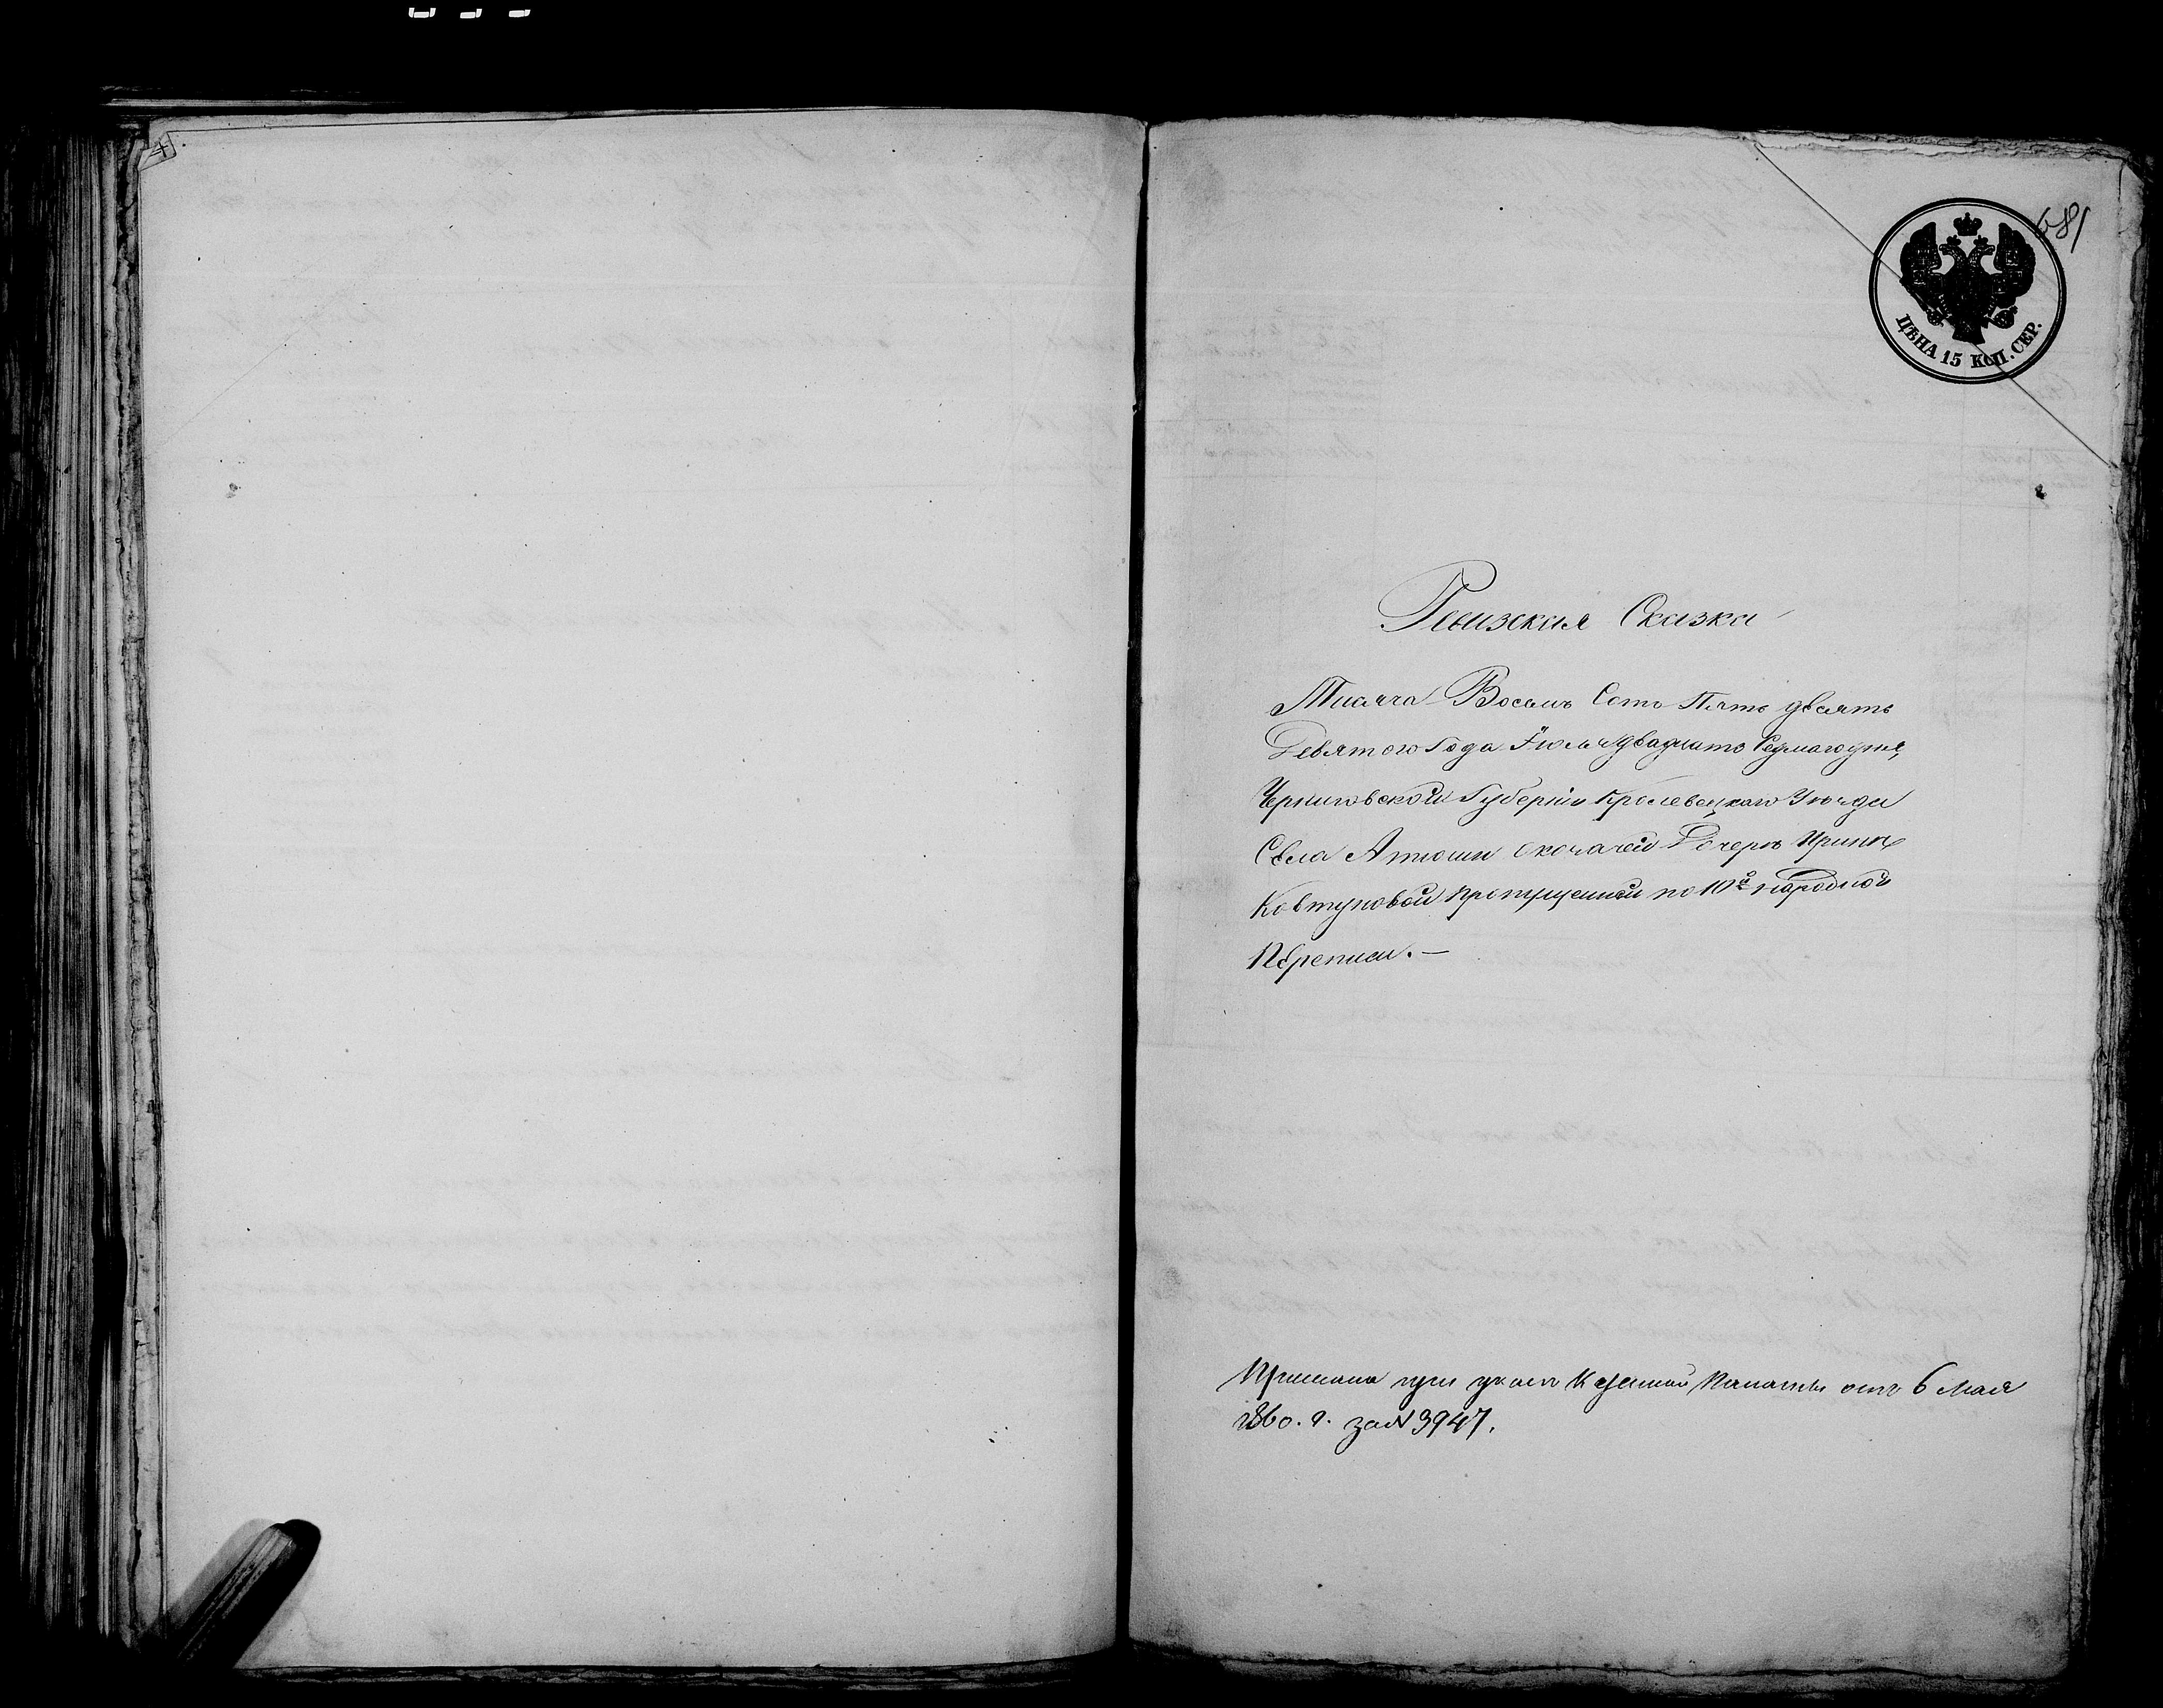 681
ЦѢНА 15 КОП. СЕР.
Ревизская Сказка
Тисяча Восемь Сотъ Пять десять
Девятого Года Іюля двадцать Седмаго дня
Черниговской Губерніи Кролевецкаго Уезда
Села Атюши Козачей Дочери Ирины
Ковтуновой пропущенной по 10й народной
Переписи. —
Прислана при указе Казенной Палаты отъ 6 Мая
1860. г. за № 3947.